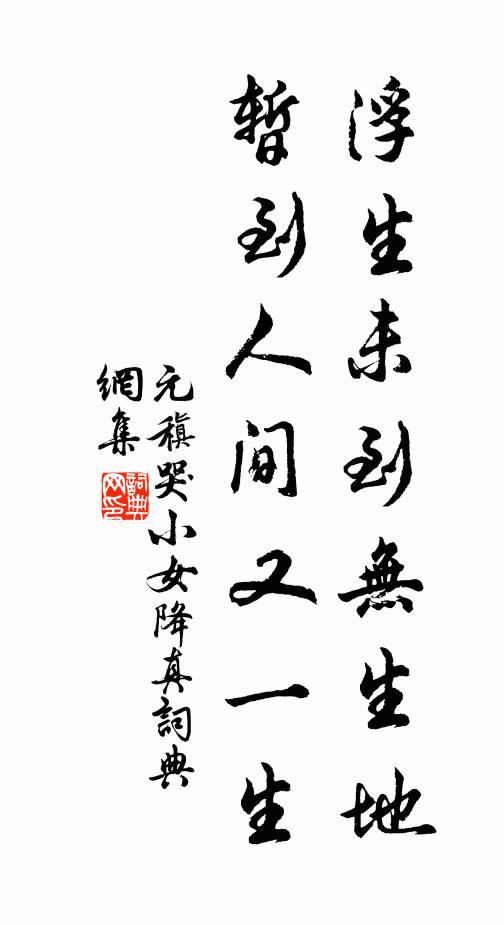 浮生未到無生地
暫到人间又一生
元稹哭小女降真詞典
網集
詞典网印